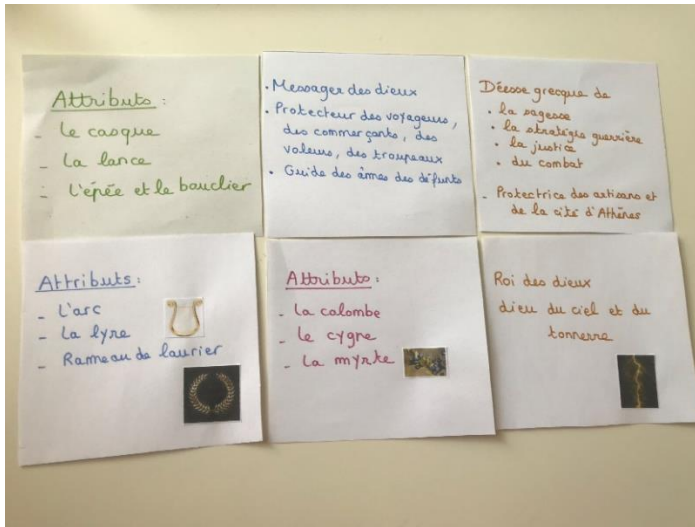 Attributs :
- Le casque
- La lance
- L'épée et le bouclier
• Messager des dieux
• Protecteur des voyageurs,
des commerçants, des
voleurs, des troupeaux
• Guide des âmes des défunts
Déesse grecque de
• la sagesse
• la stratégie guerrière
• la justice
• du combat
- Protectrice des artisans et
de la cité d'Athènes
Attributs :
- L'arc
- La lyre
- Rameau de laurier
Attributs :
- La colombe
- Le cygne
- La myrte
Roi des dieux
dieu du ciel et du
tonnerre